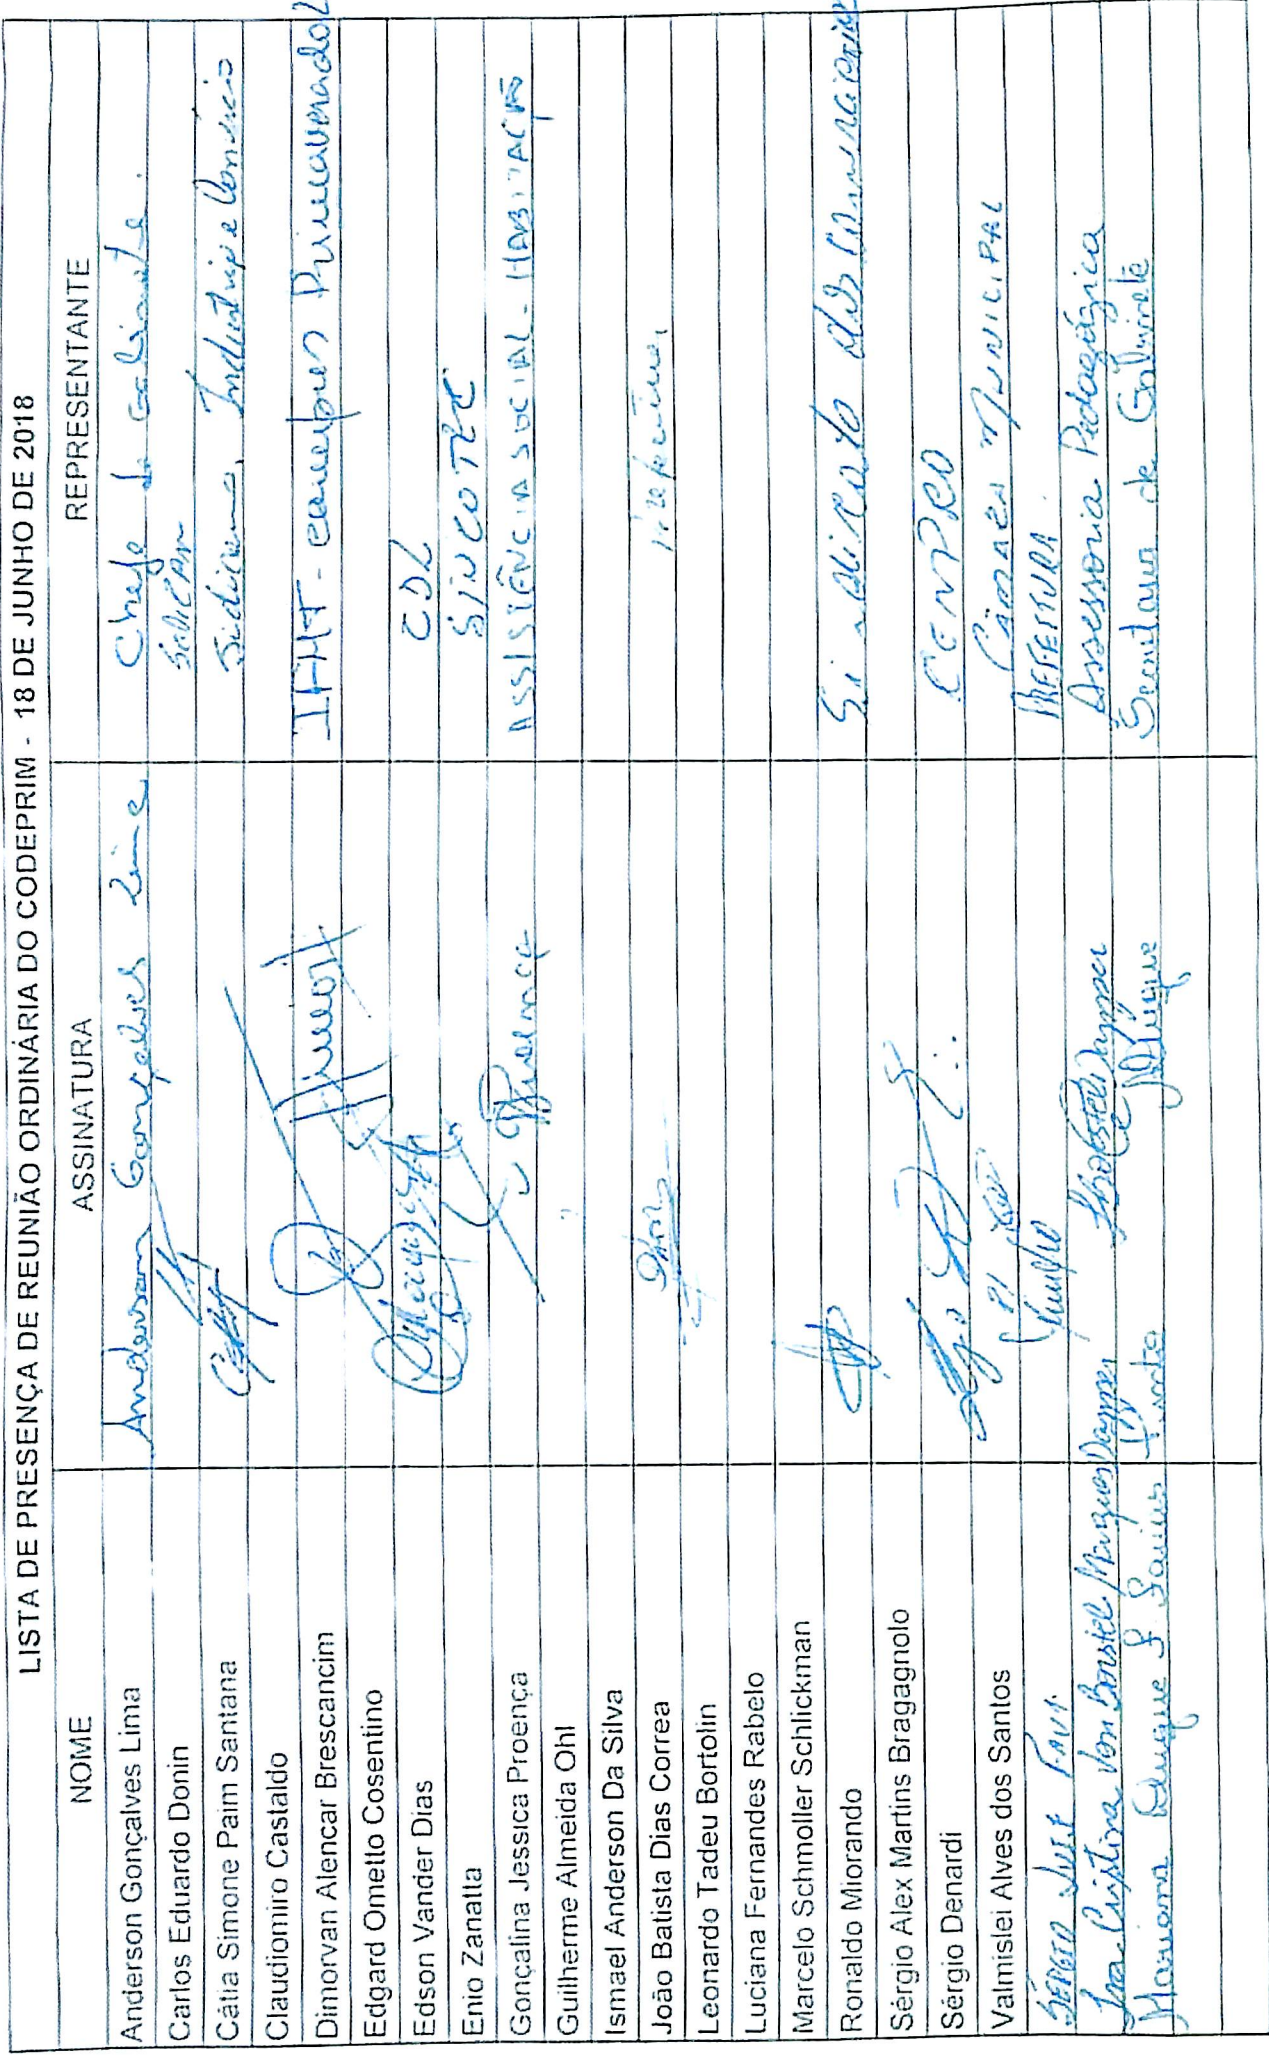 LISTA DE PRESENÇA DE REUNIÃO ORDINÁRIA DO CODEPRIM - 18 DE JUNHO DE 2018
NOME ASSINATURA REPRESENTANTE
Anderson Gonçalves Lima Anderson Gonçalves Lima Chefe de Gabinete.
Carlos Eduardo Donin
Cátia Simone Paim Santana Indústria e Comércio
Claudiomiro Castaldo
Dimorvan Alencar Brescancim IFMT - campus Primavera do L
Edgard Ometto Cosentino
Edson Vander Dias CDL
Enio Zanatta SINCOTEC
Gonçalina Jessica Proença Proença ASSISTÊNCIA SOCIAL - HABITAÇÃO
Guilherme Almeida Ohl
Ismael Anderson Da Silva
João Batista Dias Correa
Leonardo Tadeu Bortolin
Luciana Fernandes Rabelo
Marcelo Schmoller Schlickman
Ronaldo Miorando Sindicato dos
Sérgio Alex Martins Bragagnolo
Sérgio Denardi CENPRO
Valmislei Alves dos Santos Câmara MUNICIPAL
SÉRGIO LUIZ PREFEITURA.
Cristina Von Borstel Marques Assessoria Pedagógica
Mariana Duque S. Pinto Duque Secretaria de Gabinete